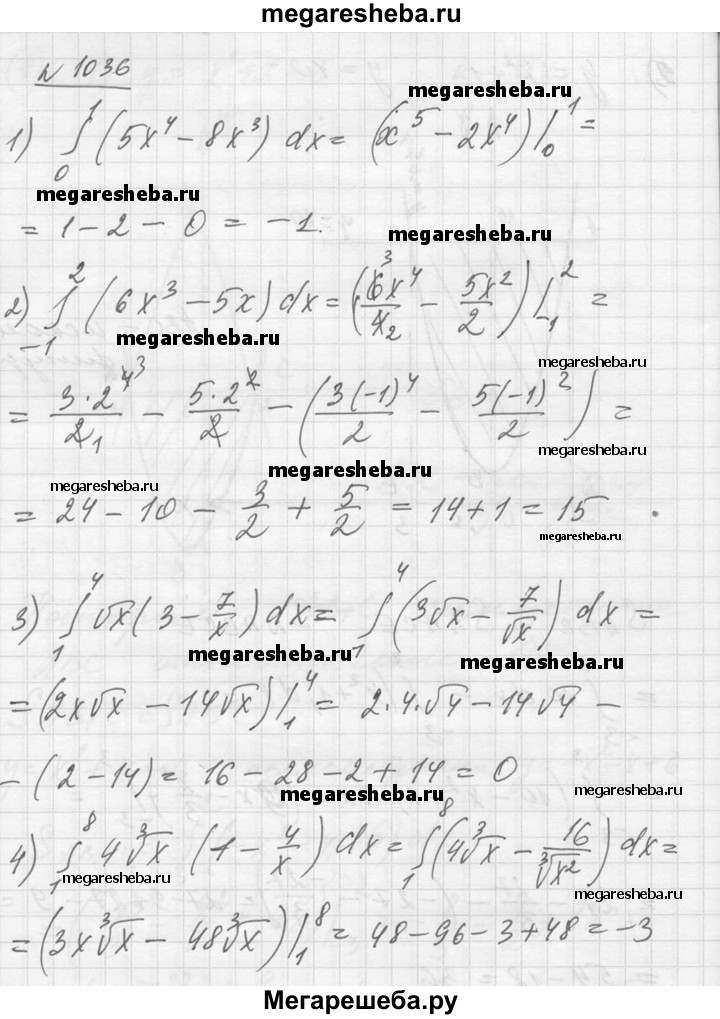 megaresheba.ru
N 1036
megaresheba.ru
1) ∫₀¹ (5x⁴ − 8x³) dx = (x⁵ − 2x⁴)|₀¹ =
megaresheba.ru
= 1 − 2 − 0 = −1.
megaresheba.ru
2) ∫₋₁² (6x³ − 5x) dx = (6x⁴/4 − 5x²/2)|₋₁² =
3
2
megaresheba.ru
megaresheba.ru
= 3·2⁴/2 − 5·2²/2 − (3(−1)⁴/2 − 5(−1)²/2) =
3
1
megaresheba.ru
megaresheba.ru
megaresheba.ru
= 24 − 10 − 3/2 + 5/2 = 14 + 1 = 15.
megaresheba.ru
3) ∫₁⁴ √x (3 − 7/x) dx = ∫₁⁴ (3√x − 7/√x) dx =
megaresheba.ru
megaresheba.ru
= (2x√x − 14√x)|₁⁴ = 2·4·√4 − 14√4 −
− (2 − 14) = 16 − 28 − 2 + 14 = 0
megaresheba.ru
megaresheba.ru
4) ∫₁⁸ 4∛x (1 − 4/x) dx = ∫₁⁸ (4∛x − 16/∛x²) dx =
megaresheba.ru
megaresheba.ru
= (3x∛x − 48∛x)|₁⁸ = 48 − 96 − 3 + 48 = −3
Мегарешеба.ру